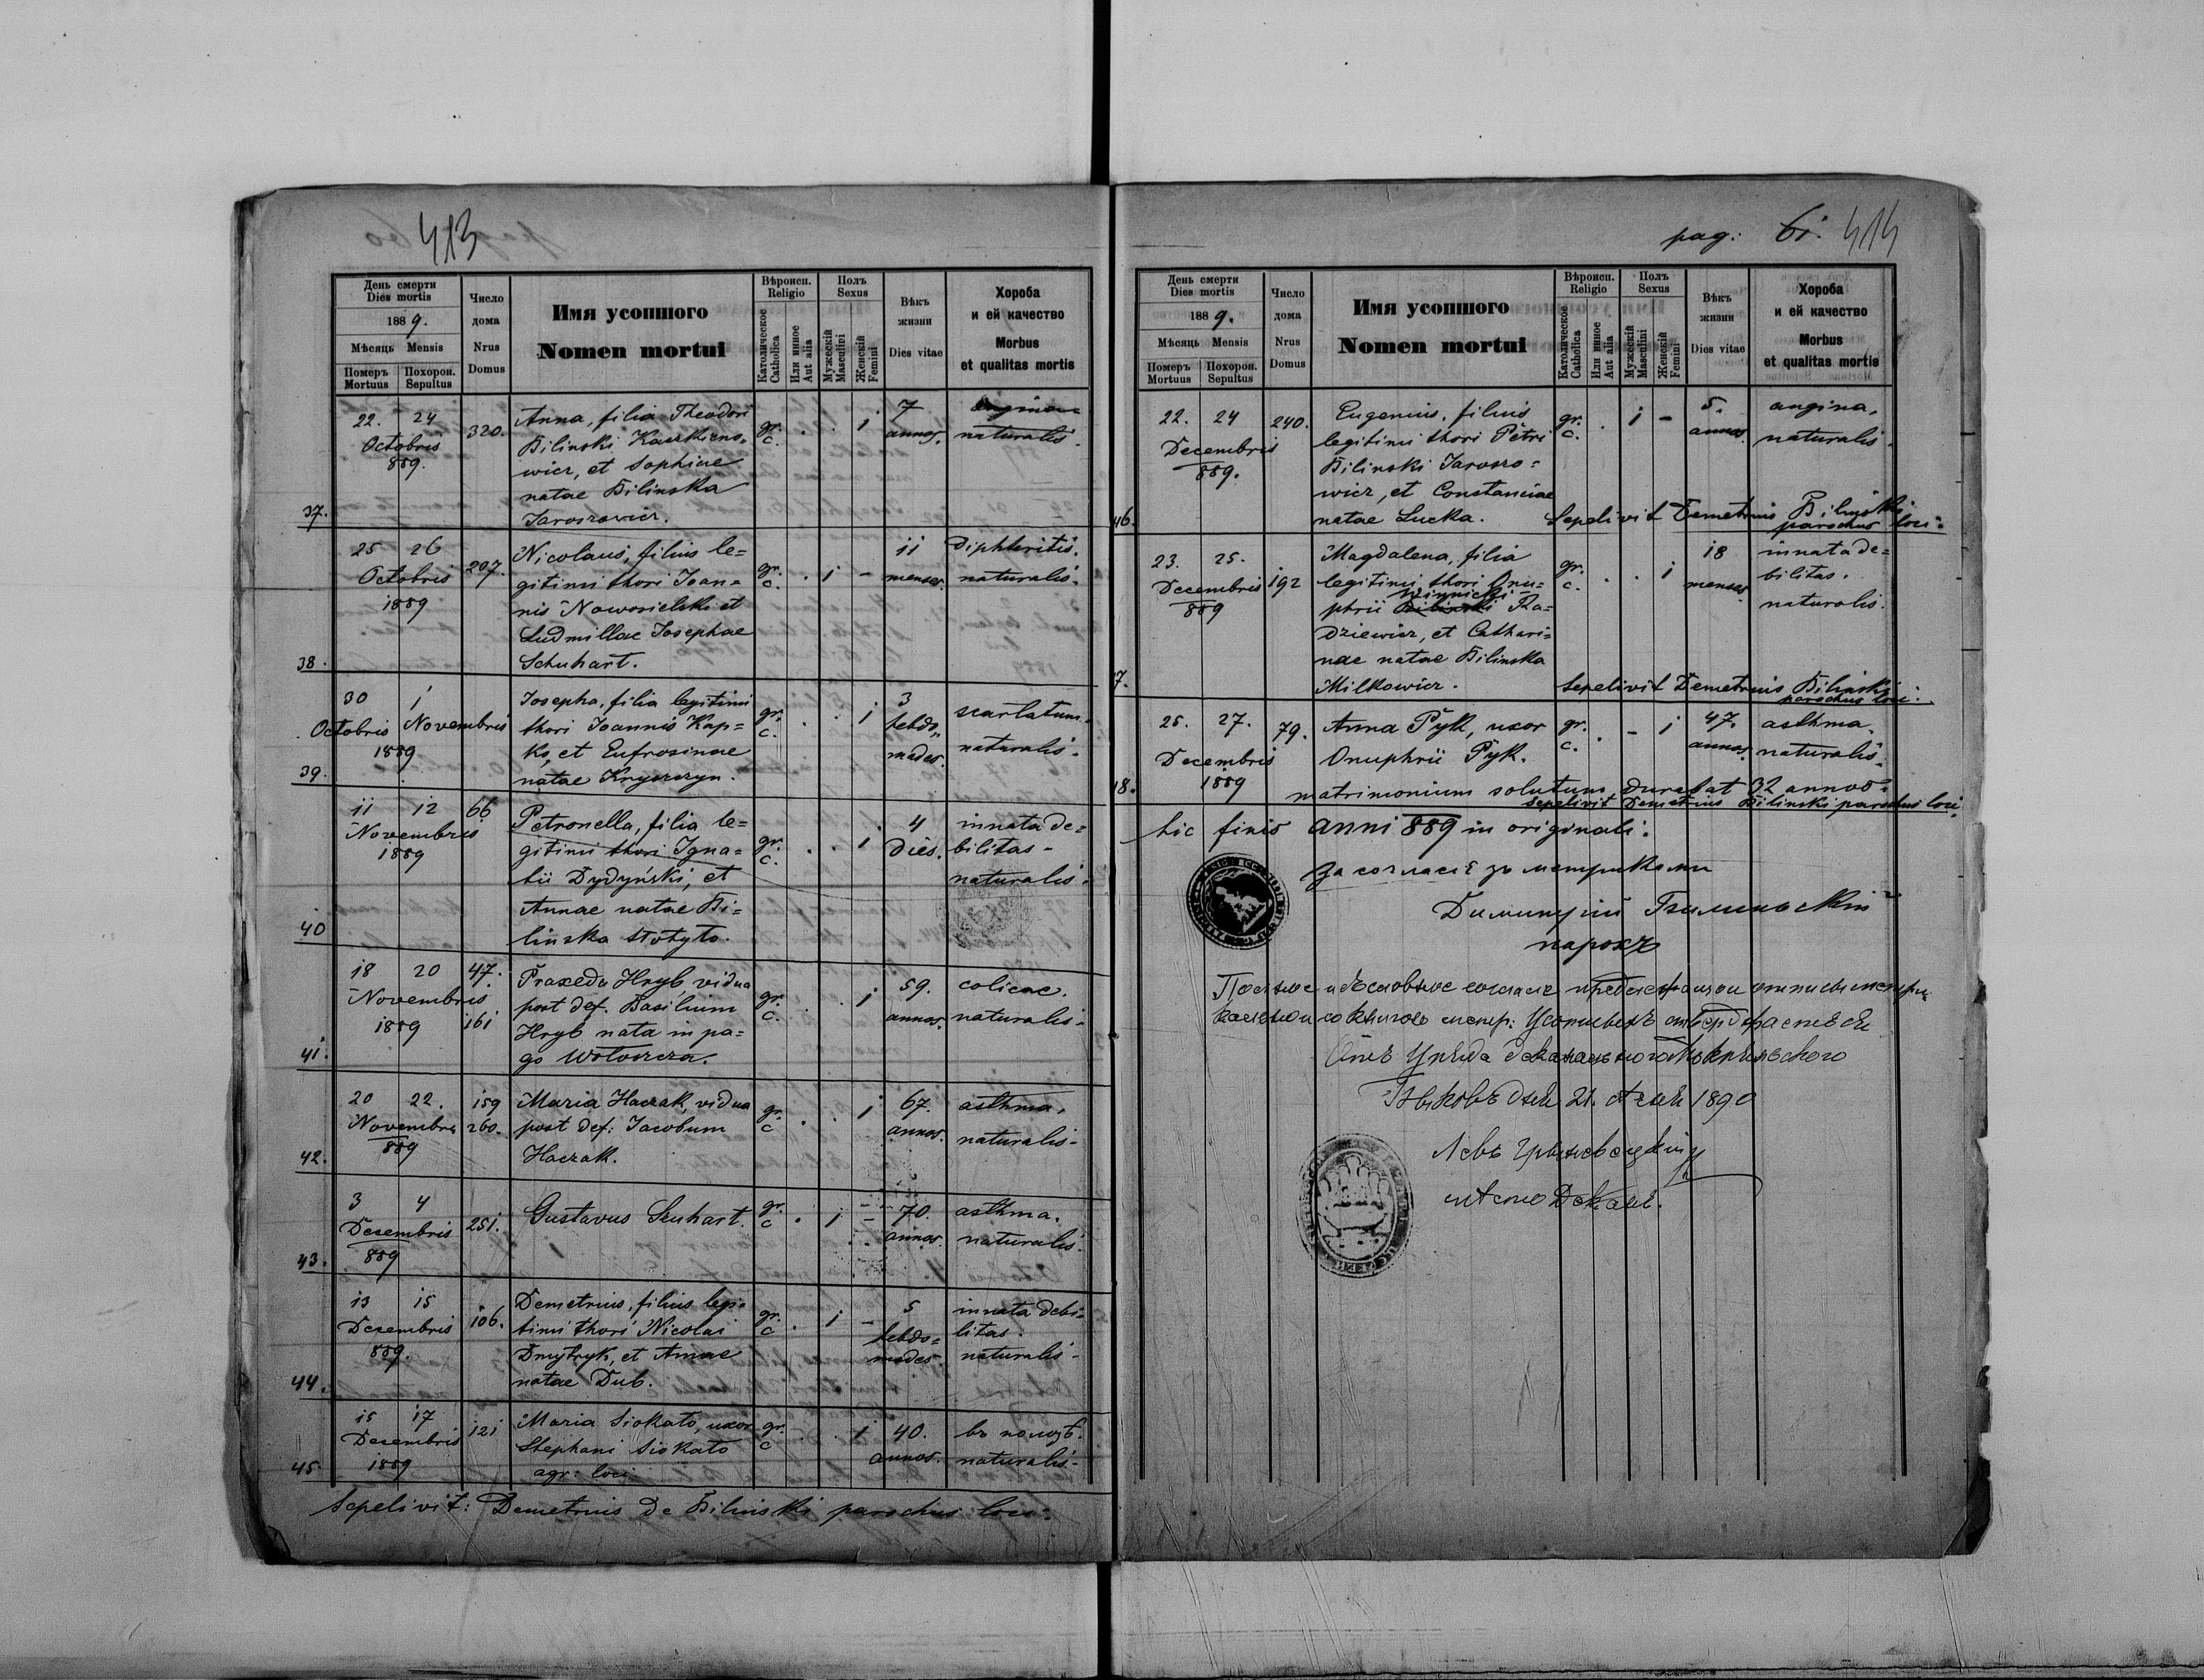 413
День смерти
Dies mortis
1889.
Мѣсяць Mensis
Померъ Похорон.
Mortuus Sepultus
Число
дома
Nrus
Domus
Имя усопшого
Nomen mortui
Вѣроисп.
Religio
Католическое
Catholica
Или иное
Aut alia
Полъ
Sexus
Мужескій
Masculini
Женскій
Femini
Вѣкъ
жизни
Dies vitae
Хороба
и ей качество
Morbus
et qualitas mortis
37.
22. 24
Octobris
889.
320.
Anna, filia Theodori
Bilinski Kaszkieno=
wicz, et Sophiae
natae Bilinska
Jaroszowicz.
gr.
c.
. . i
7
annos.
angina
naturalis.
38.
25 26
Octobris
1889
207.
Nicolaus, filius le=
gitimi thori Ioan=
nis Nowosielski et
Ludmillae Iosephae
Schuhart.
gr.
c.
. i -
ii
menses.
diphteritis.
naturalis.
39.
30 i
Octobris Novembris
1889
Iosepha, filia legitimi
thori Ioannis Kap=
ko, et Eufrosinae
natae Knyszczyn.
gr.
c.
. . i
3
hebdo=
mades.
scarlatum.
naturalis.
40
ii 12
Novembris
1889
66
Petronella, filia le=
gitimi thori Igna=
tii Dydyński, et
Annae natae Bi=
linska Stotyło.
gr.
c.
. . i
4
dies.
innata de=
bilitas-
naturalis.
41.
18 20
Novembris
1889
47.
161
Praxeda Hryb, vidua
post def. Basilium
Hryb nata in pa=
go Wołoszcza.
gr.
c.
. . i
59.
annos.
colicae.
naturalis-
42.
20 22.
Novembris
889
159
260.
Maria Haczak, vidua
post def: Iacobum
Haczak.
gr.
c
. . i
67.
annos.
asthma.
naturalis-
43.
3 4
Decembris
889
251.
Gustavus Seuhart.
gr.
c
. i -
70.
annos.
asthma.
naturalis.
44.
13 15
Decembris
889.
106.
Demetrius, filius legi=
timi thori Nicolai
Dmytryk, et Annae
natae Dub.
gr.
c
. i -
5
hebdo=
mades.
innata debi=
litas.
naturalis-
45.
15 17
Decembris
1889
121
Maria Siokało, uxor
Stephani Siokało
agr: loci
gr.
c
. . i
40.
annos.
въ пологѣ.
naturalis-
Sepelivit: Demetrius de Bilinski parochus loci.
pag: 61. 414
День смерти
Dies mortis
1889.
Мѣсяць Mensis
Померъ Похорон.
Mortuus Sepultus
Число
дома
Nrus
Domus
Имя усопшого
Nomen mortui
Вѣроисп.
Religio
Католическое
Catholica
Или иное
Aut alia
Полъ
Sexus
Мужескій
Masculini
Женскій
Femini
Вѣкъ
жизни
Dies vitae
Хороба
и ей качество
Morbus
et qualitas mortis
46.
22. 24
Decembris
889.
240.
Eugenius, filius
legitimi thori Petri
Bilinski Jaroszo=
wicz, et Constanciae
natae Lucka.
gr.
c.
. i -
5.
annos
angina.
naturalis.
Sepelivit Demetrius Bilinski
parochus loci.
7.
23. 25.
Decembris
889
192
Magdalena, filia
legitimi thori Onu=
phrii Winnicki Ta=
dziewicz, et Cathari=
nae natae Bilinska
Milkowicz.
gr.
c.
. . i
18
menses
innata de=
bilitas.
naturalis.
Sepelivit Demetrius Bilinski
parochus loci.
18.
25. 27.
Decembris
1889
79.
Anna Pyk, uxor
Onuphrii Pyk.
gr.
c.
. - i
47.
annos.
asthma.
naturalis.
matrimonium solutum, durabat 32 annos.
sepelivit Demetrius Bilinski parochus loci.
hic finis anni 889 in originali.
За согласіе зъ метриками
Димитрій Билиньскій
парохъ
Отъ Уряда деканального Мокрянского
Быковъ дня 21. 1890
Левъ